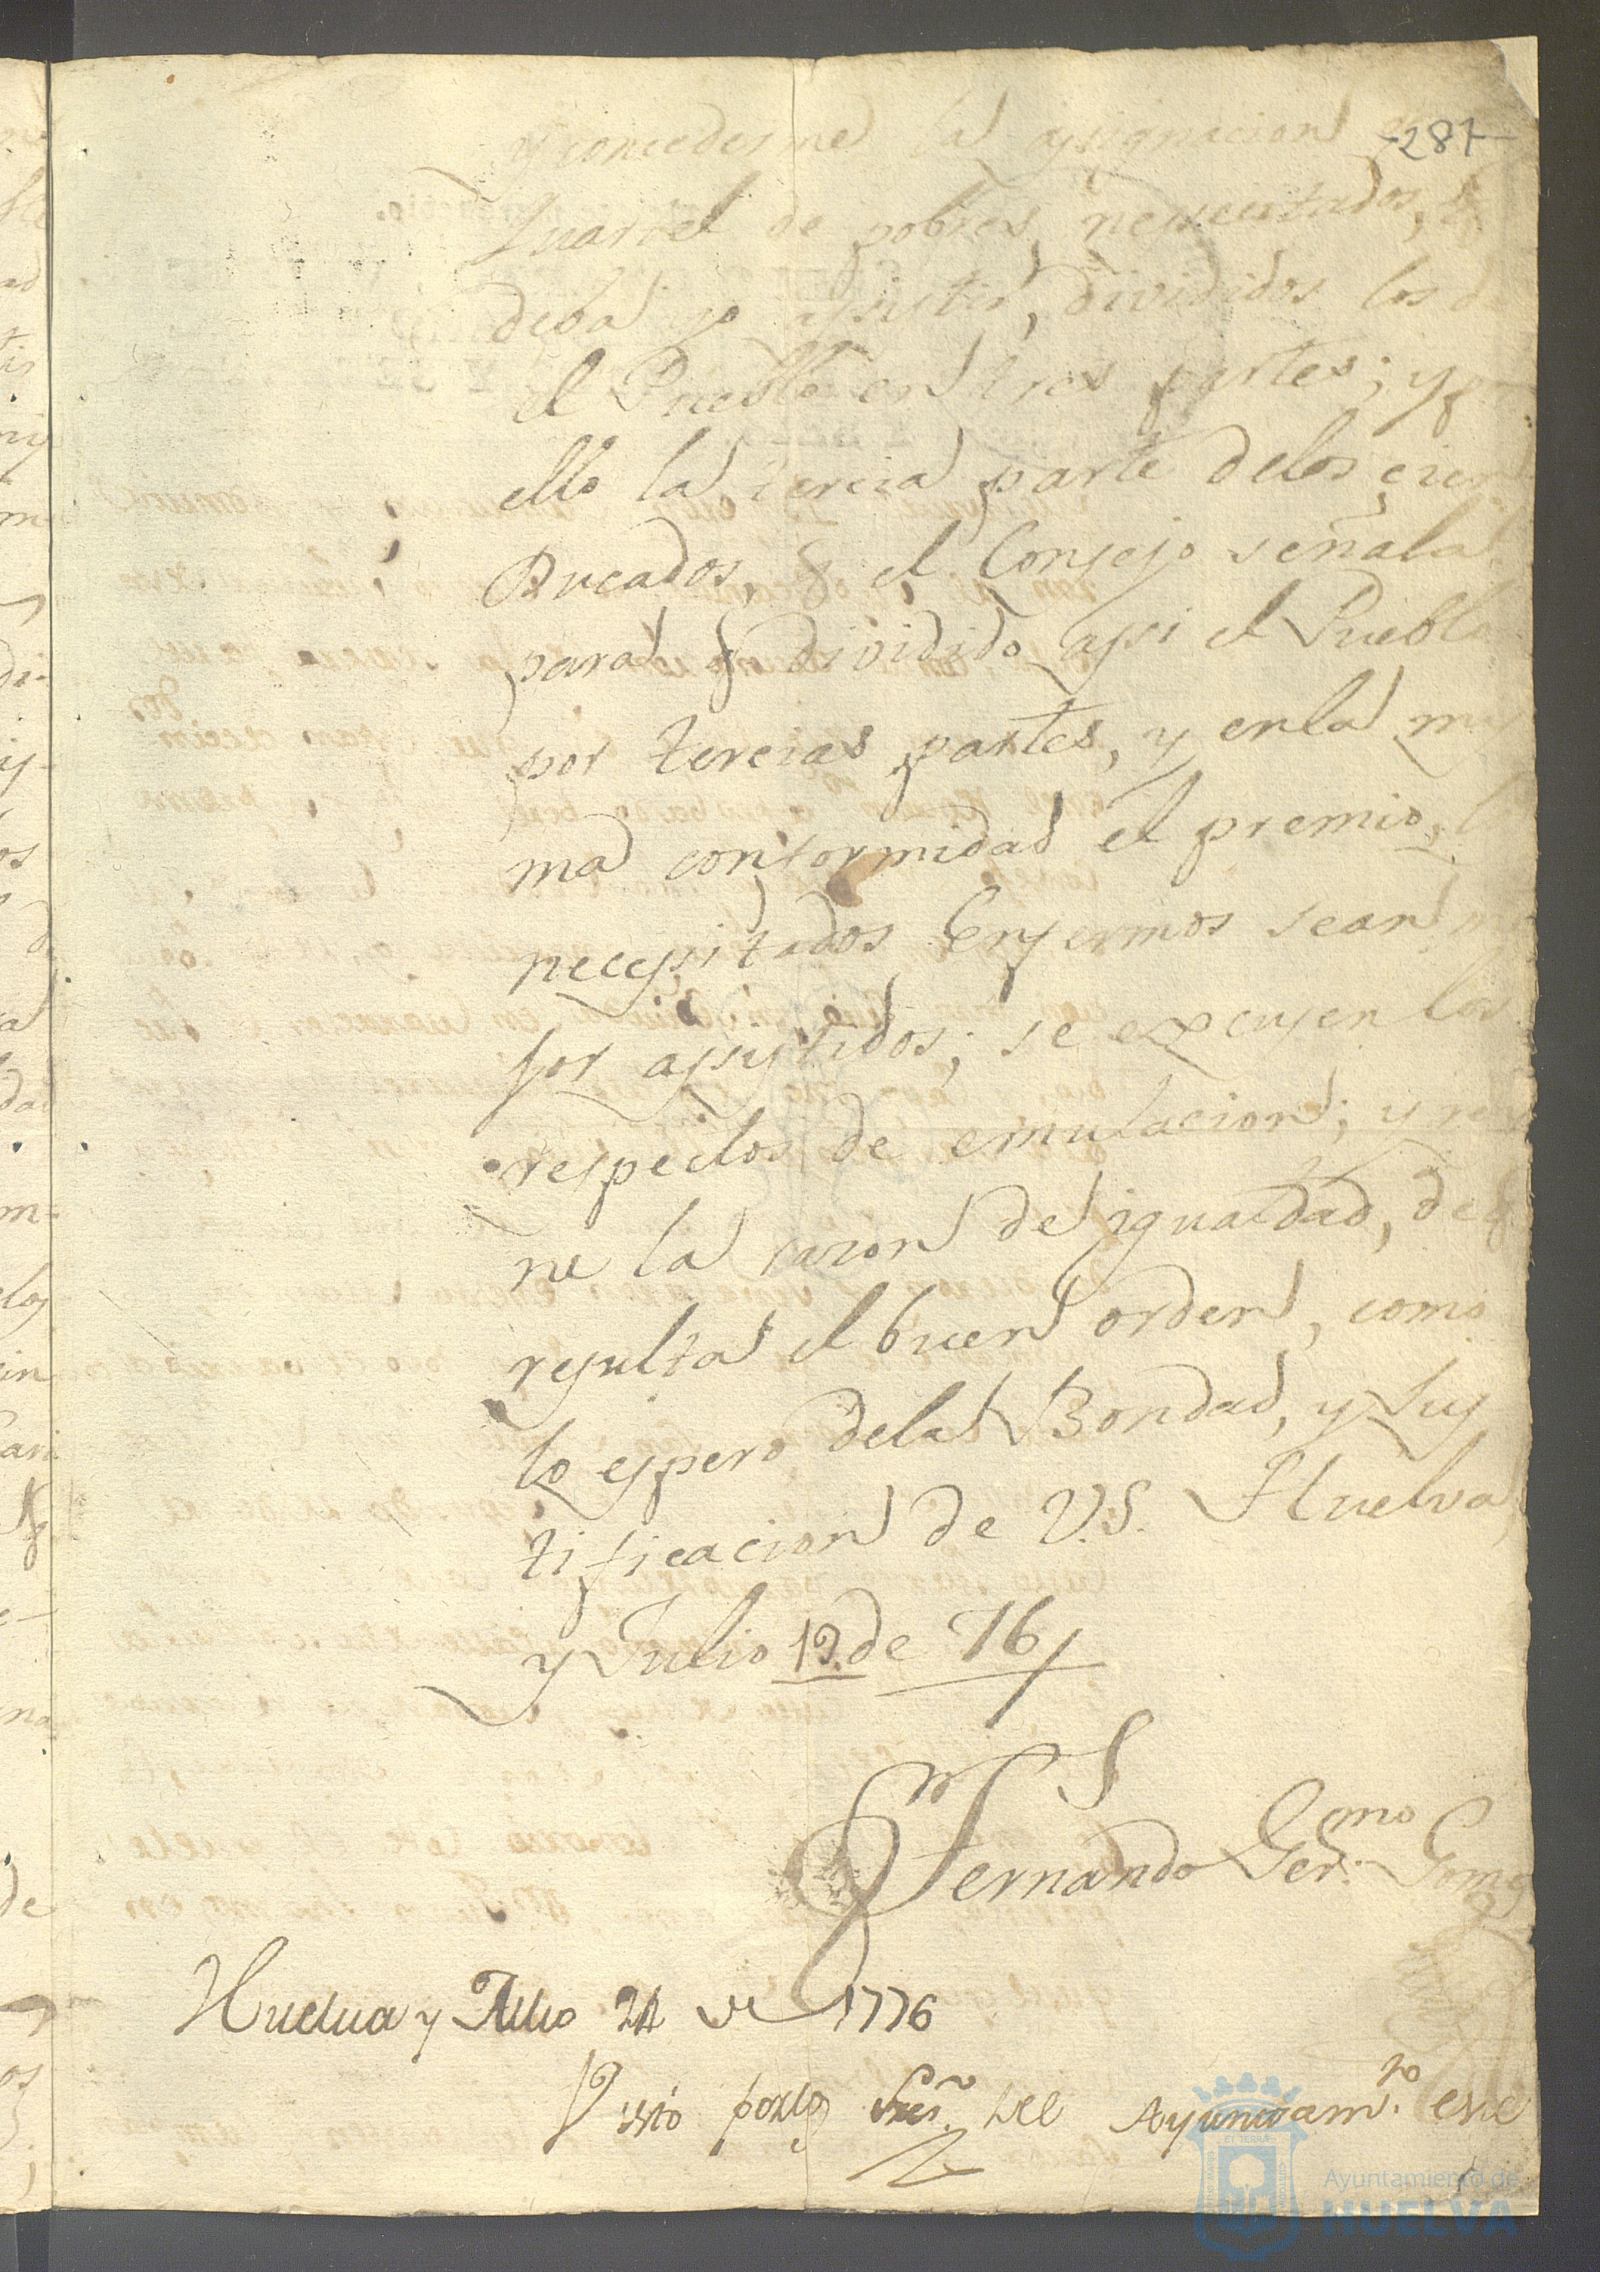 -287-
y concederme la asignacion
Quartel de pobres nesecitados, q
deba yo asistir, divididos los d
el Pueblo en tres partes; y p
ello la tercia parte delos cien
Ducados, q el Consejo señala
para q dividido assi el Pueblo
por tercias partes, y enla mis
ma conformidad el premio, l
necessitados Enfermos sean m
jor assistidos; se excusen los
respectos de emulacion; y rey
ne la razon de igualdad, de q
resulta el buen orden, como
lo espero dela Bondad, y Jus
tificacion de V.S. Huelva,
y Julio 19. de 76
Fernando Ger.mo Gomez
Huelua y Julio 24 de 1776
Visto por los Sres. del Ayuntam.to este
Ayuntamiento de
HUELVA